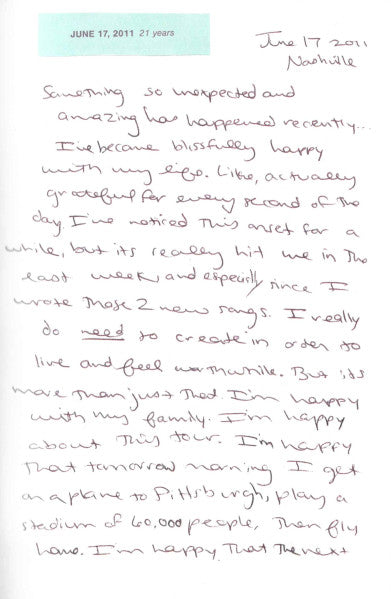 JUNE 17, 2011 21 years
June 17 2011
Nashville
Something so unexpected and
amazing has happened recently...
I've become blissfully happy
with my life. Like, actually
grateful for every second of the
day. I've noticed this onset for a
while, but its really hit me in the
last week, and especially since I
wrote those 2 new songs. I really
do need to create in order to
live and feel worthwhile. But its
more than just that. I'm happy
with my family. I'm happy
about this tour. I'm happy
that tomorrow morning I get
on a plane to Pittsburgh, play a
stadium of 60,000 people, then fly
home. I'm happy that the next